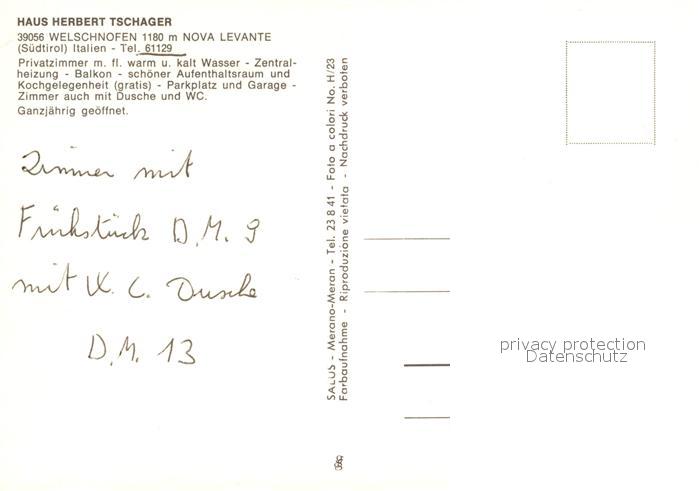 HAUS HERBERT TSCHAGER
39056 WELSCHNOFEN 1180 m NOVA LEVANTE
(Südtirol) Italien - Tel. 61129
Privatzimmer m. fl. warm u. kalt Wasser - Zentral-
heizung - Balkon - schöner Aufenthaltsraum und
Kochgelegenheit (gratis) - Parkplatz und Garage -
Zimmer auch mit Dusche und WC.
Ganzjährig geöffnet.
Zimmer mit
Frühstück D.M. 9
mit W.C. Dusche
D.M. 13
SALUS - Merano-Meran - Tel. 23 8 41 - Foto a colori No. H/23
Farbaufnahme - Riproduzione vietata - Nachdruck verboten
privacy protection
Datenschutz